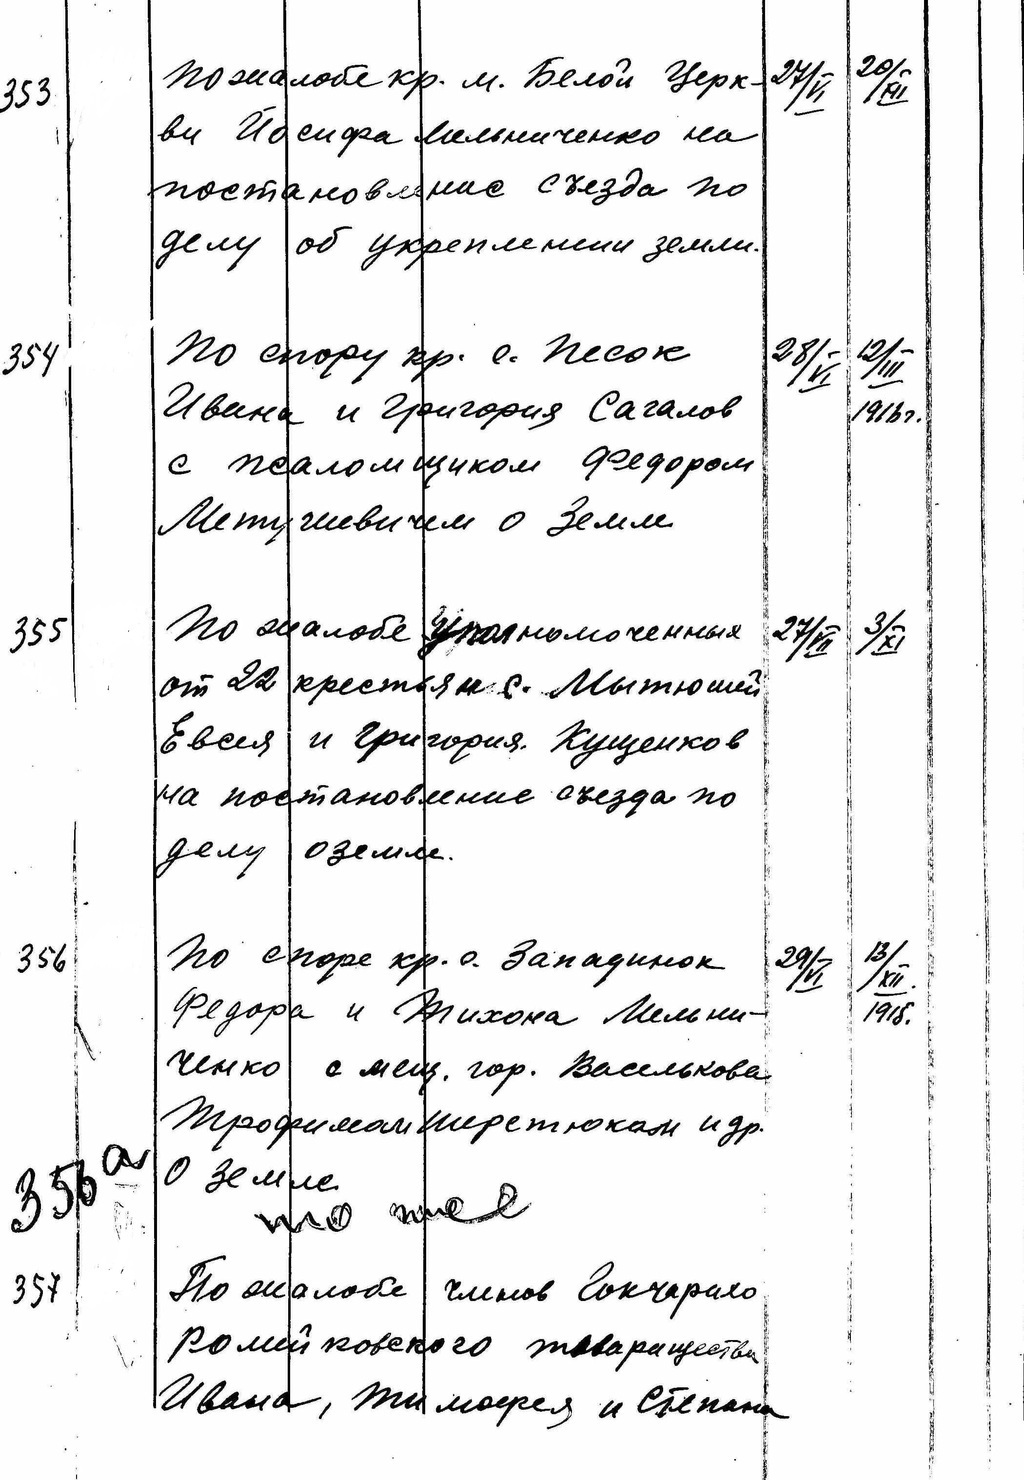 353 По жалобе кр. м. Белой Церк- 27/VI 20/XII
ви Иосифа Мельниченко на
постановление съезда по
делу об укреплении земли.
354 По спору кр. с. Песок 28/VI 12/III
Ивана и Григория Сагалов 1916 г.
с псаломщиком Федором
о земле
355 По жалобе Уполномоченных 27/VII 3/XI
от 22 крестьян с. Мытюшей
Евсея и Григория Кущенков
на постановление съезда по
делу о земле.
356 По споре кр. с. Западинок 29/VI 13/XII.
Федора и Тихона Мельни- 1915.
ченко с мещ. гор. Василькова
Трофимом Шеретюкам и др.
О земле
356а то же
357 По жалобе членов Гончарихо
Ромейковского товарищества
Ивана, Тимофея и Степана